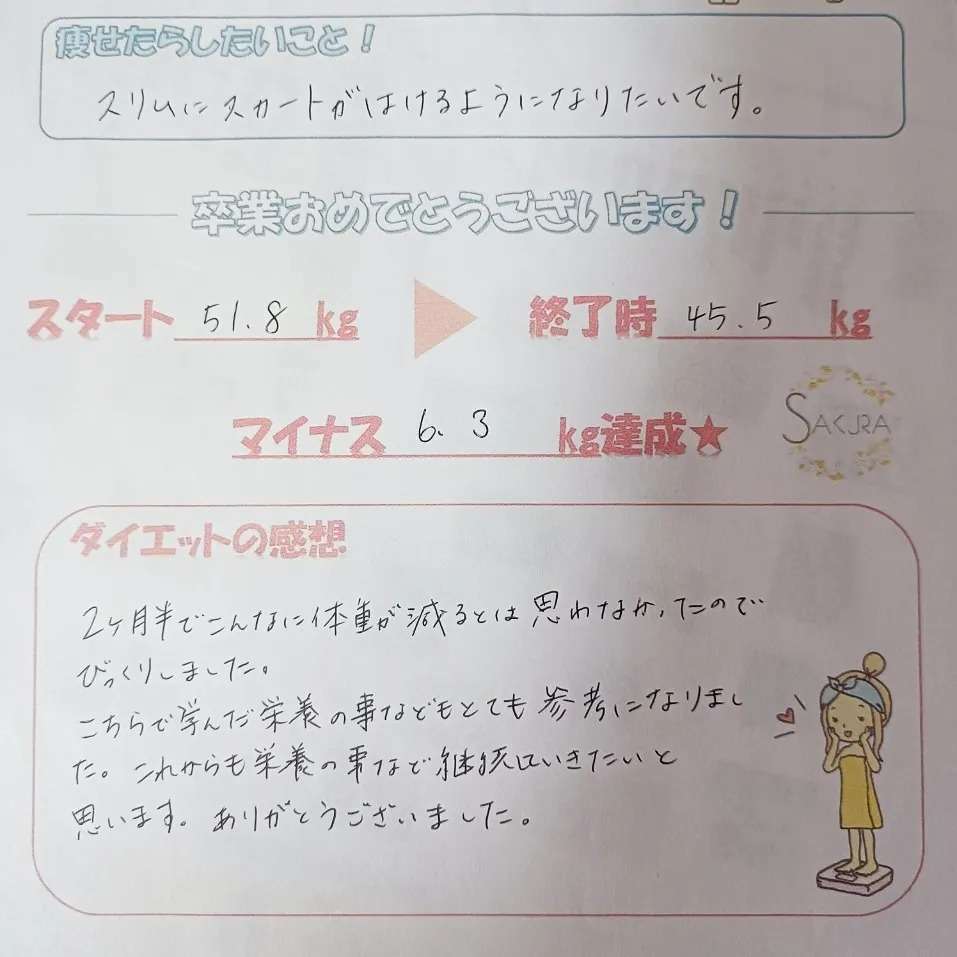 痩せたらしたいこと！
スリムにスカートがはけるようになりたいです。
卒業おめでとうございます！
スタート 51.8 kg 終了時 45.5 kg
マイナス 6.3 kg達成★
SAKURA
ダイエットの感想
2ヶ月半でこんなに体重が減るとは思わなかったので
びっくりしました。
こちらで学んだ栄養の事などもとても参考になりまし
た。これからも栄養の事など継続していきたいと
思います。ありがとうございました。